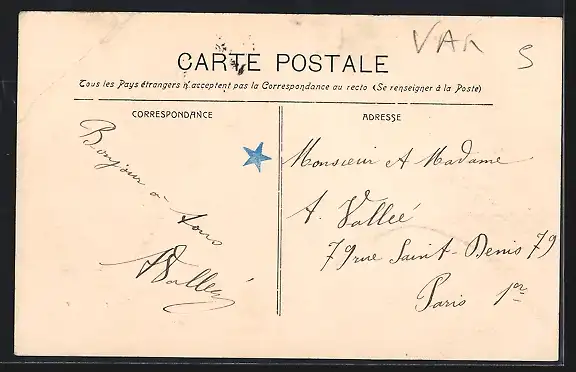 VAR
5
CARTE POSTALE
Tous les Pays étrangers n'acceptent pas la Correspondance au recto (Se renseigner à la Poste)
CORRESPONDANCE
Bonjour a tous
AVallée
ADRESSE
Monsieur et Madame
A. Vallée
79 rue Saint-Denis 79
Paris 1er